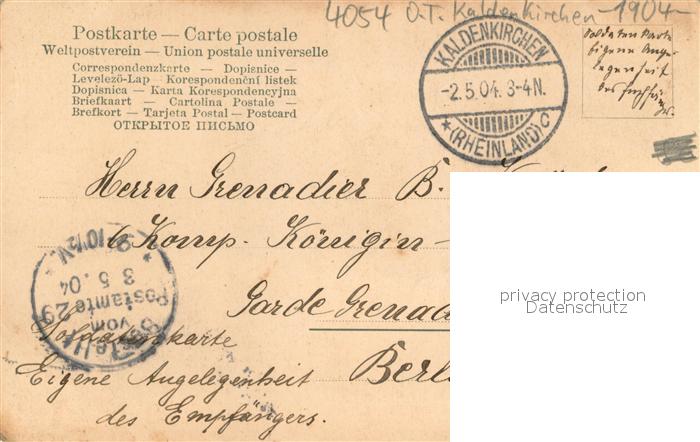 4054 O.T. Kaldenkirchen -1904-
Postkarte — Carte postale
Weltpostverein — Union postale universelle
Correspondenzkarte — Dopisnice —
Levelező-Lap — Korespondenční listek
Dopisnica — Karta Korespondencyjna
Briefkaart — Cartolina Postale —
Brefkort — Tarjeta Postal — Postcard
ОТКРЫТОЕ ПИСЬМО
KALDENKIRCHEN
-2.5.04. 3-4N.
* (RHEINLAND) C
Soldaten Karte
Eigene Ange-
legenheit
des
Herrn Grenadier B.
6 Komp. Königin-
Garde Grenad
Berl
Bestellt
vom
Postamte 29
3.5.04
10½V.
Soldatenkarte
Eigene Angelegenheit
des Empfängers.
privacy protection
Datenschutz